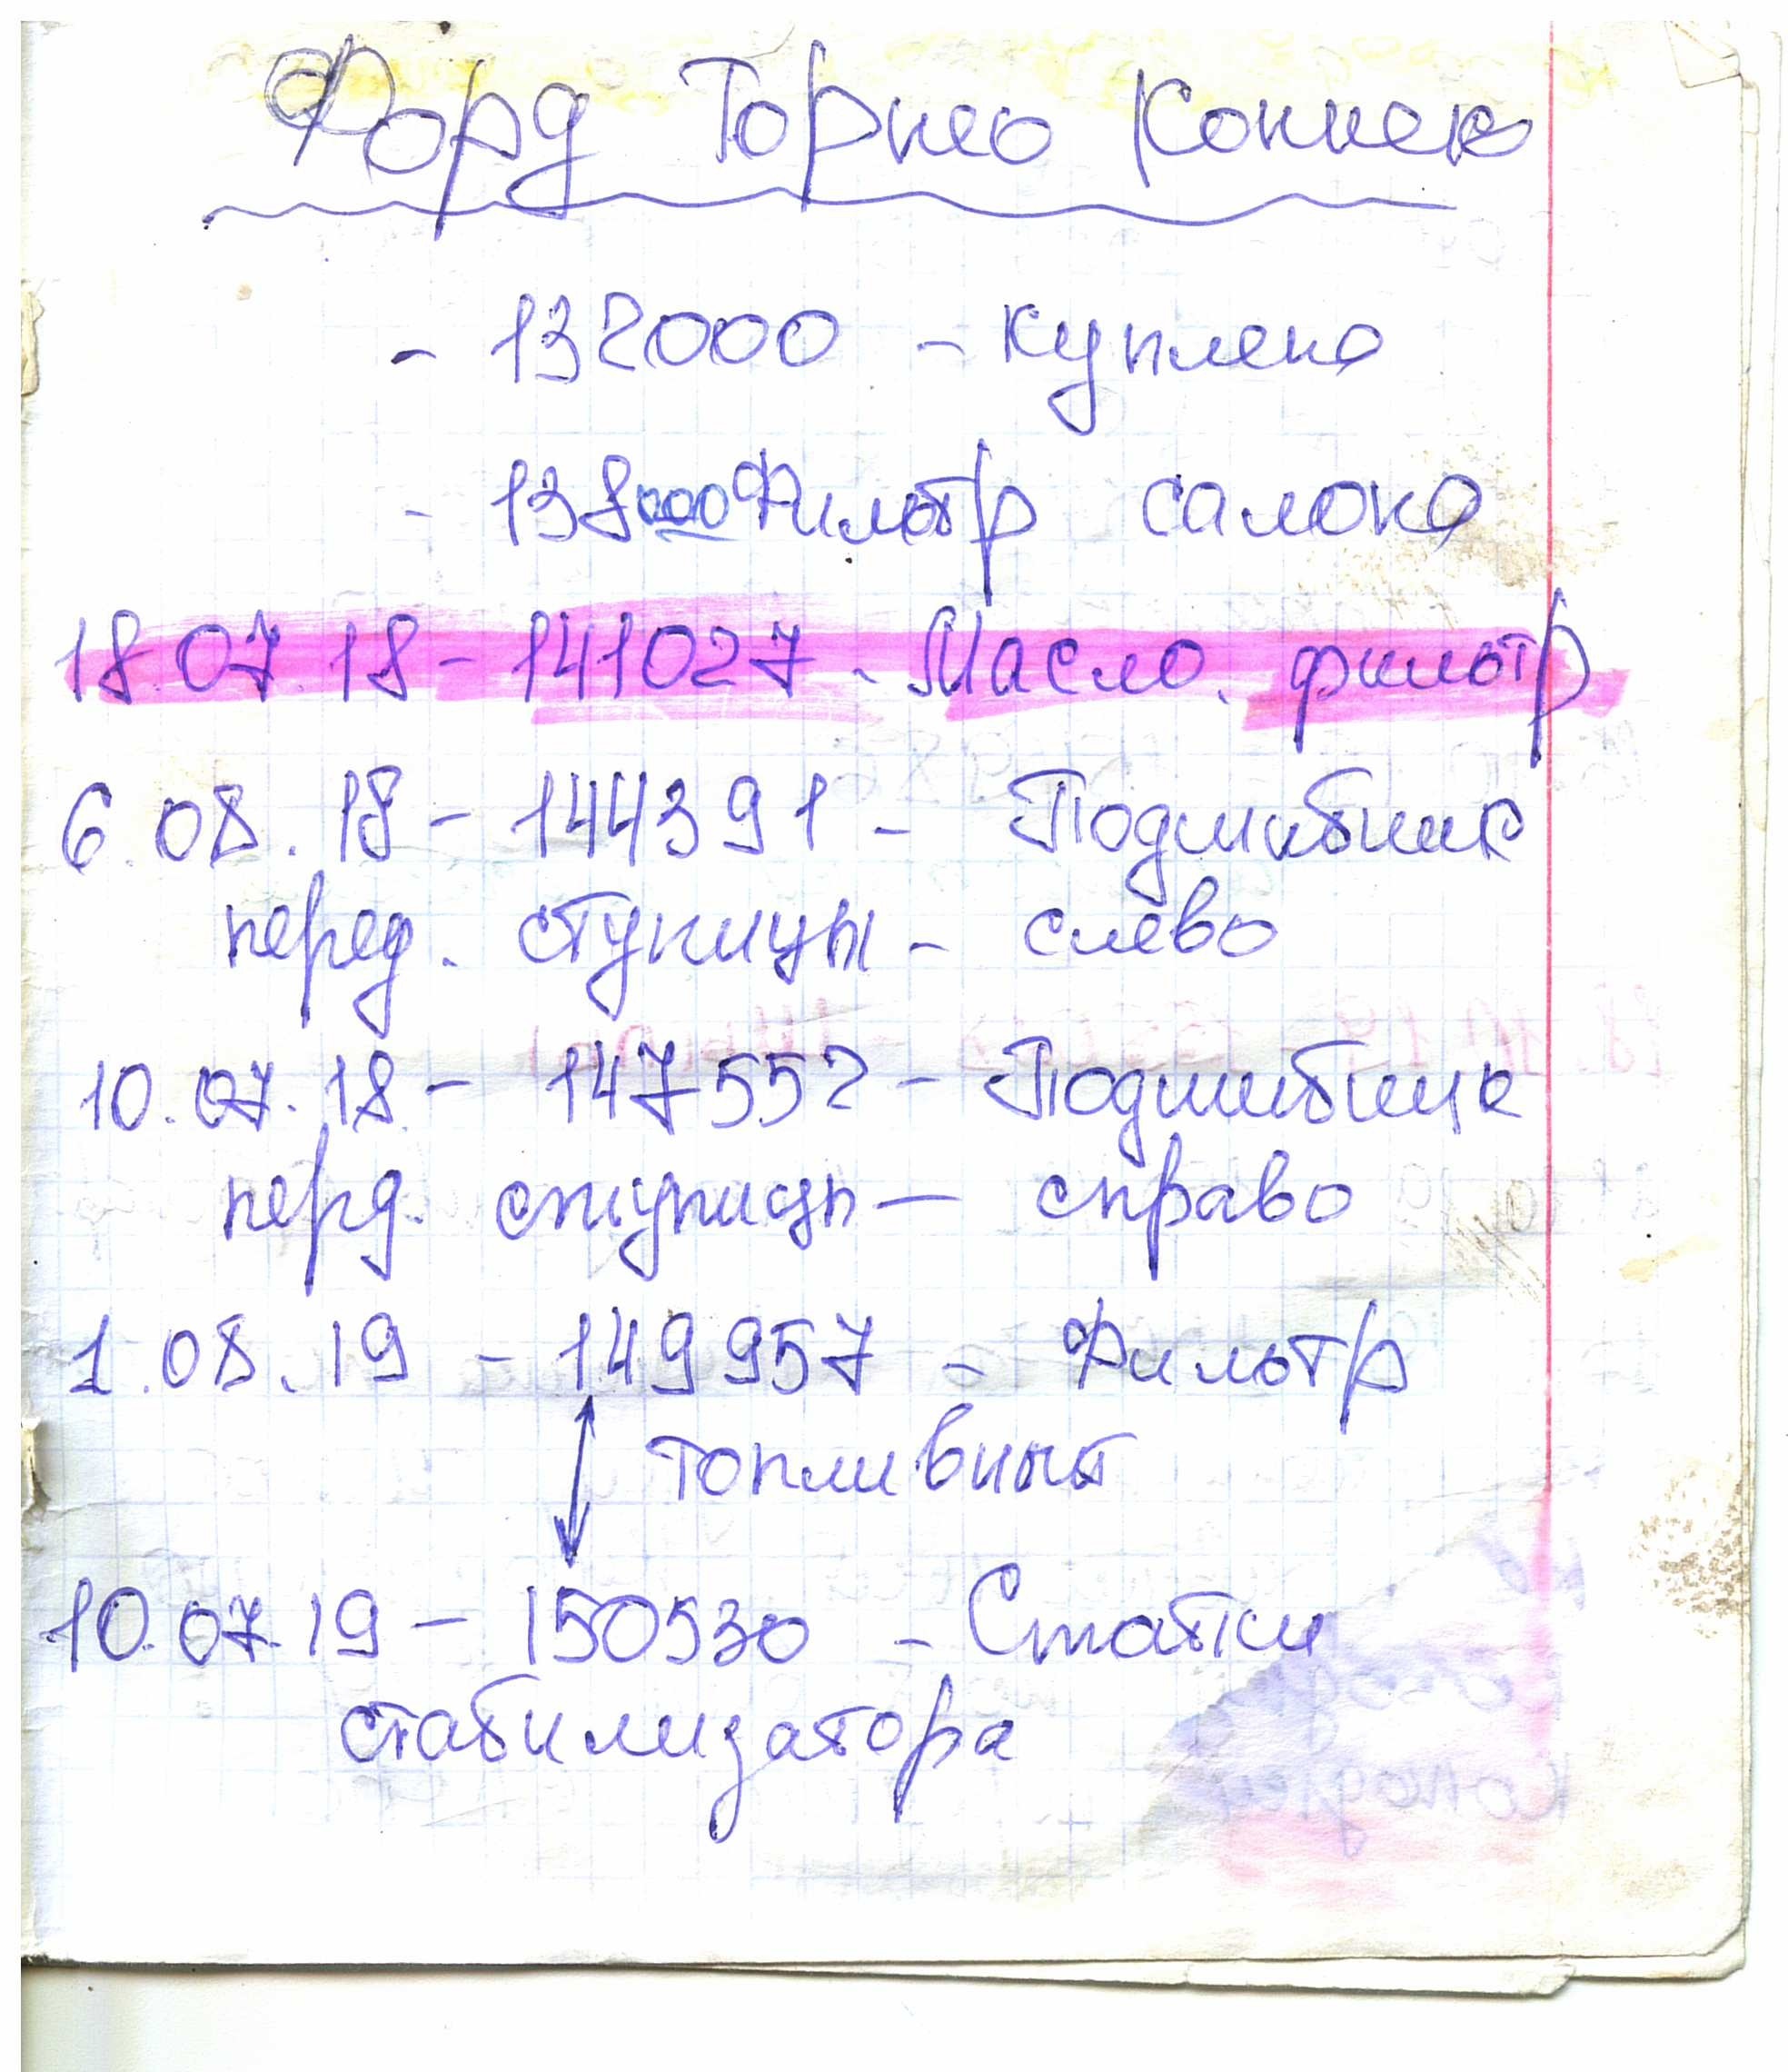 Форд Торнео Коннек
- 132000 - куплена
- 138000 Фильтр салона
18.07.18 - 141027 - Масло. фильтр
6.08.18 - 144391 - Подшибник
перед. ступицы - слево
10.07.18 - 147552 - Подшибник
перд. ступицы - справо
1.08.19 - 149957 - Фильтр
топливный
10.07.19 - 150530 - Стойки
стабилизатора